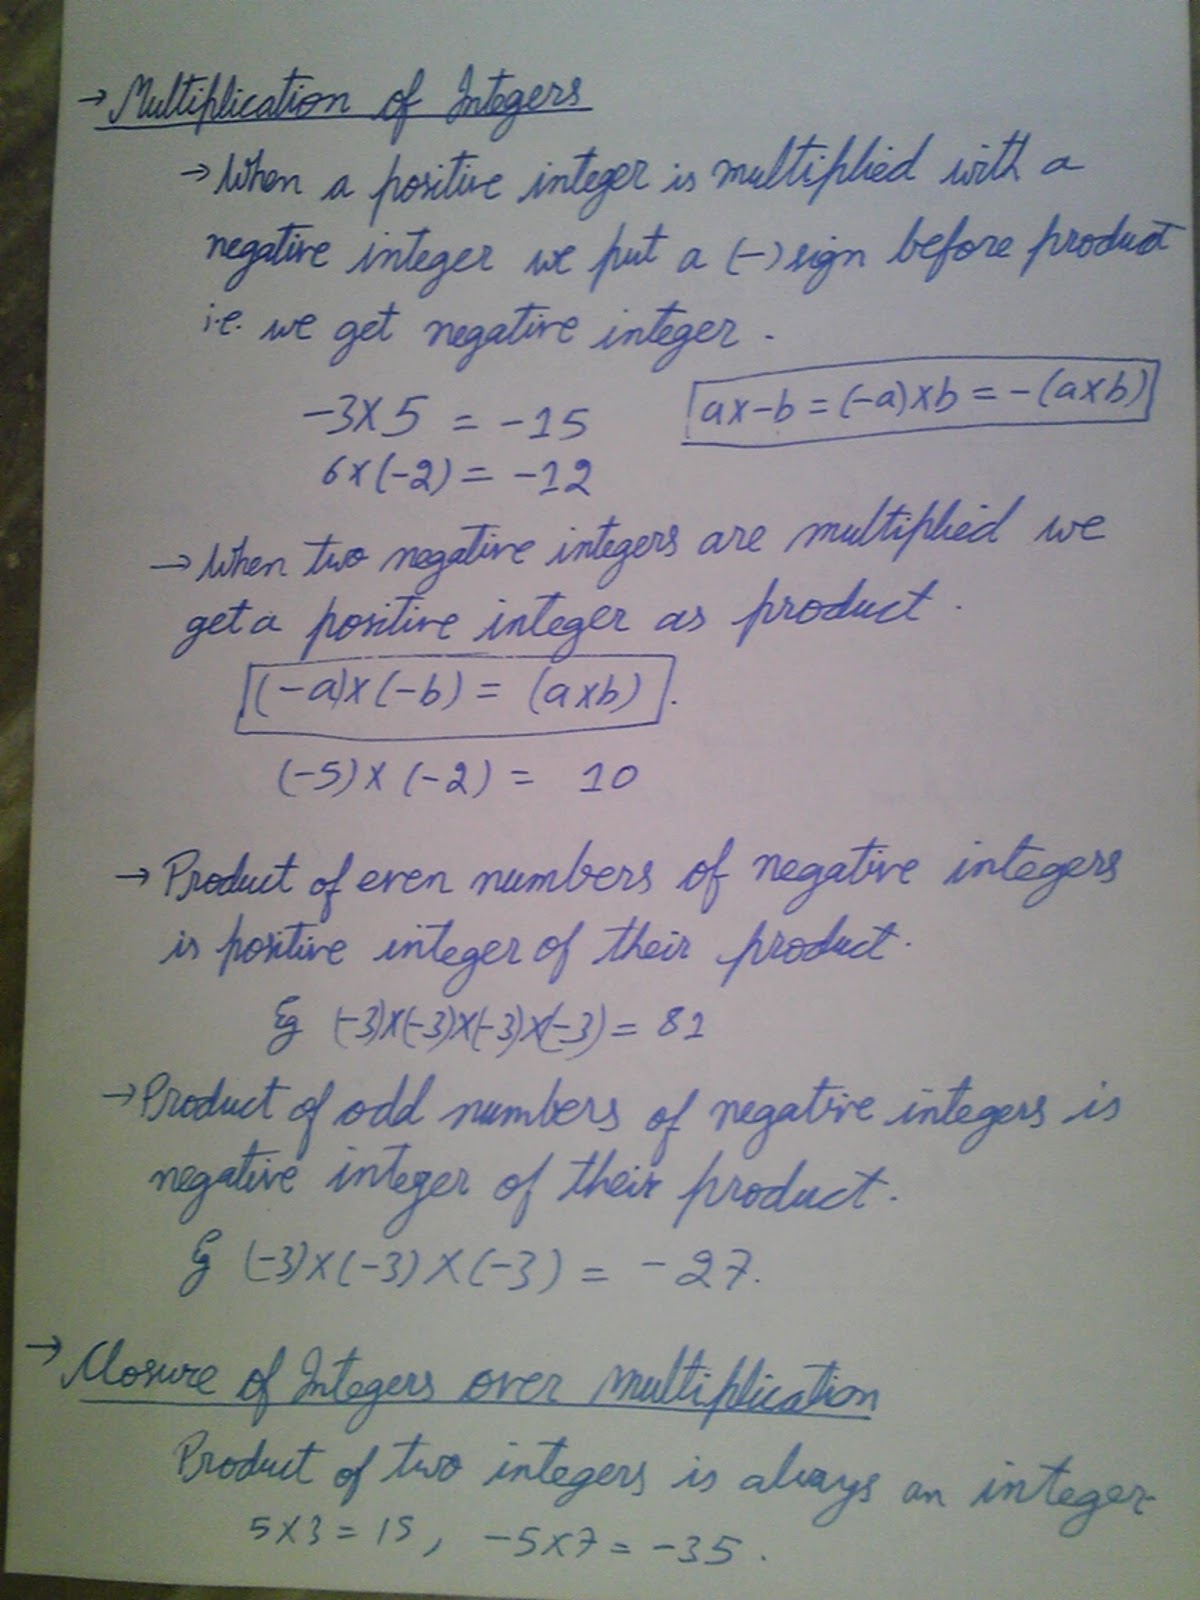 → Multiplication of Integers
→ When a positive integer is multiplied with a
negative integer we put a (-) sign before product
i.e. we get negative integer.
-3x5 = -15
ax-b = (-a)xb = -(axb)
6x(-2) = -12
→ When two negative integers are multiplied we
get a positive integer as product.
(-a)x(-b) = (axb).
(-5)x(-2) = 10
→ Product of even numbers of negative integers
is positive integer of their product.
Eg (-3)x(-3)x(-3)x(-3) = 81
→ Product of odd numbers of negative integers is
negative integer of their product.
Eg (-3)x(-3)x(-3) = -27.
→ Closure of Integers over multiplication
Product of two integers is always an integer
5x3 = 15, -5x7 = -35.